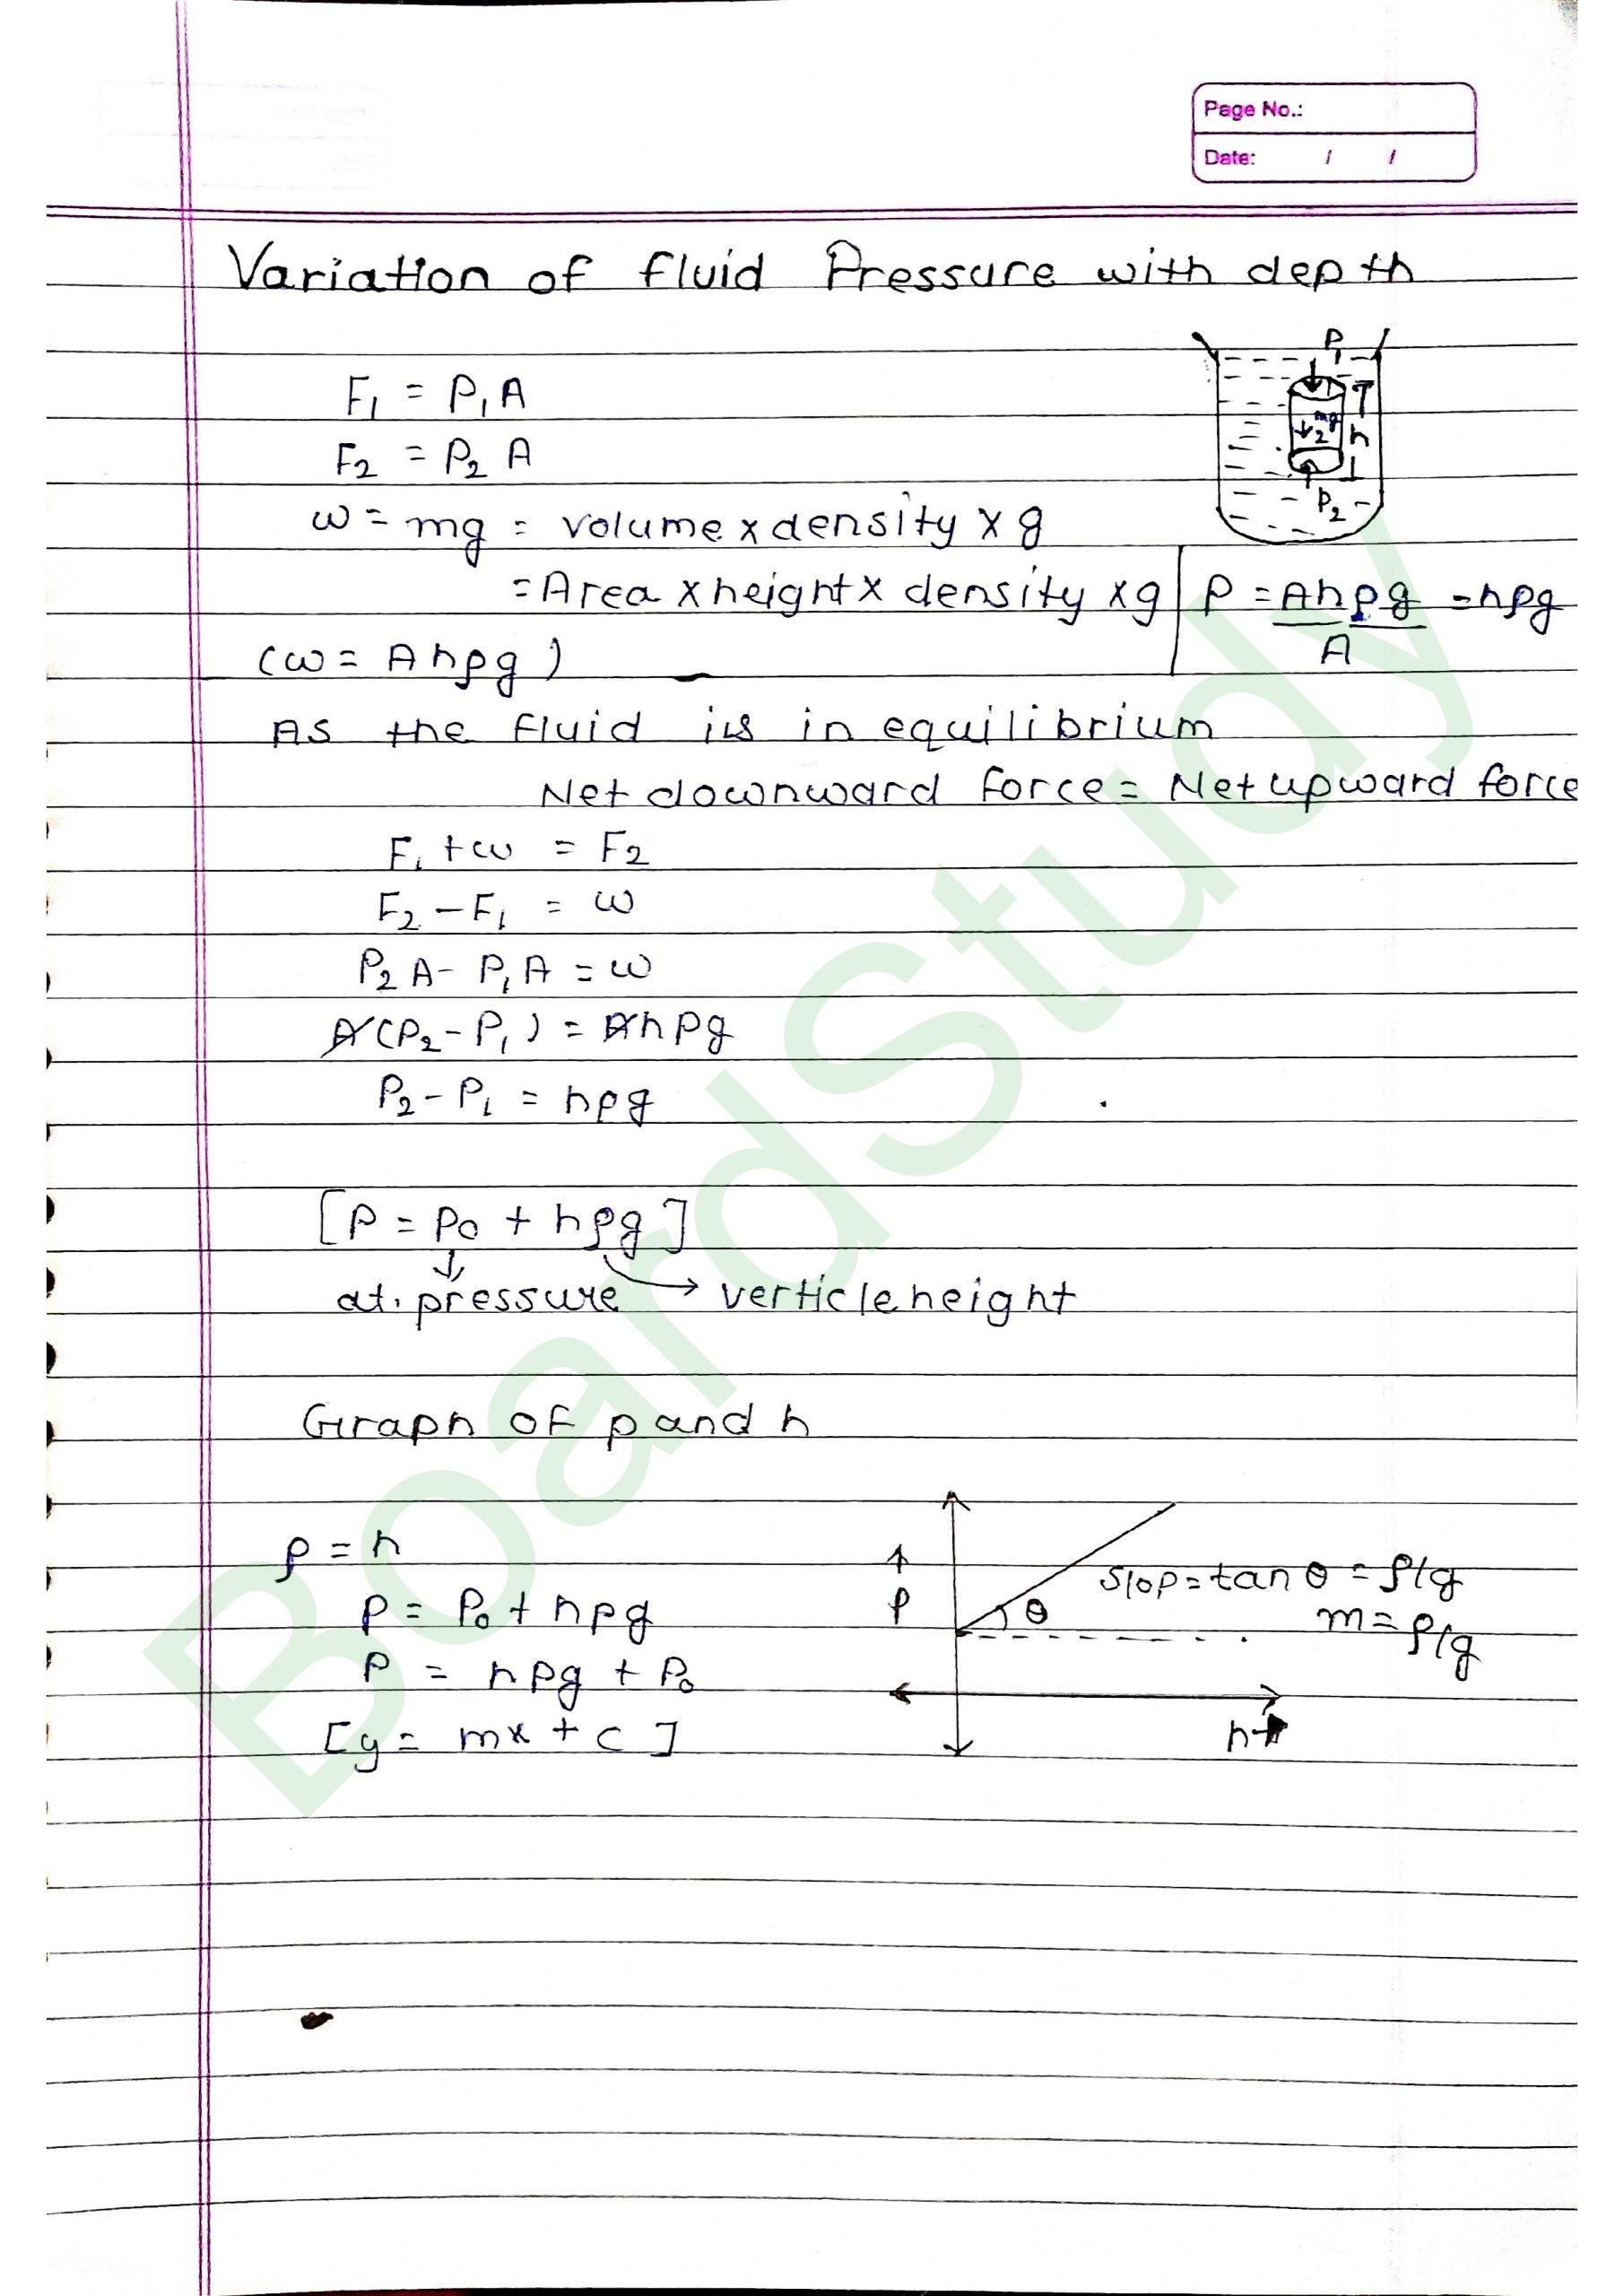 Page No.:
Date: / /
Variation of fluid Pressure with depth
P₁
mg
2
h
P₂
F₁ = P₁ A
F₂ = P₂ A
w = mg = volume x density x g
= Area x height x density x g | P = Ahρg = hρg
A
(w = Ahρg)
As the fluid is in equilibrium
Net downward force = Net upward force
F₁ + w = F₂
F₂ - F₁ = w
P₂ A - P₁ A = w
A(P₂ - P₁) = Ahρg
P₂ - P₁ = hρg
[P = P₀ + hρg]
at. pressure → verticle height
Graph of p and h
ρ = h
P = P₀ + hρg
P = hρg + P₀
[y = mx + c]
P
θ
Slop = tan θ = ρ/g
m = ρ/g
h
BoardStudy